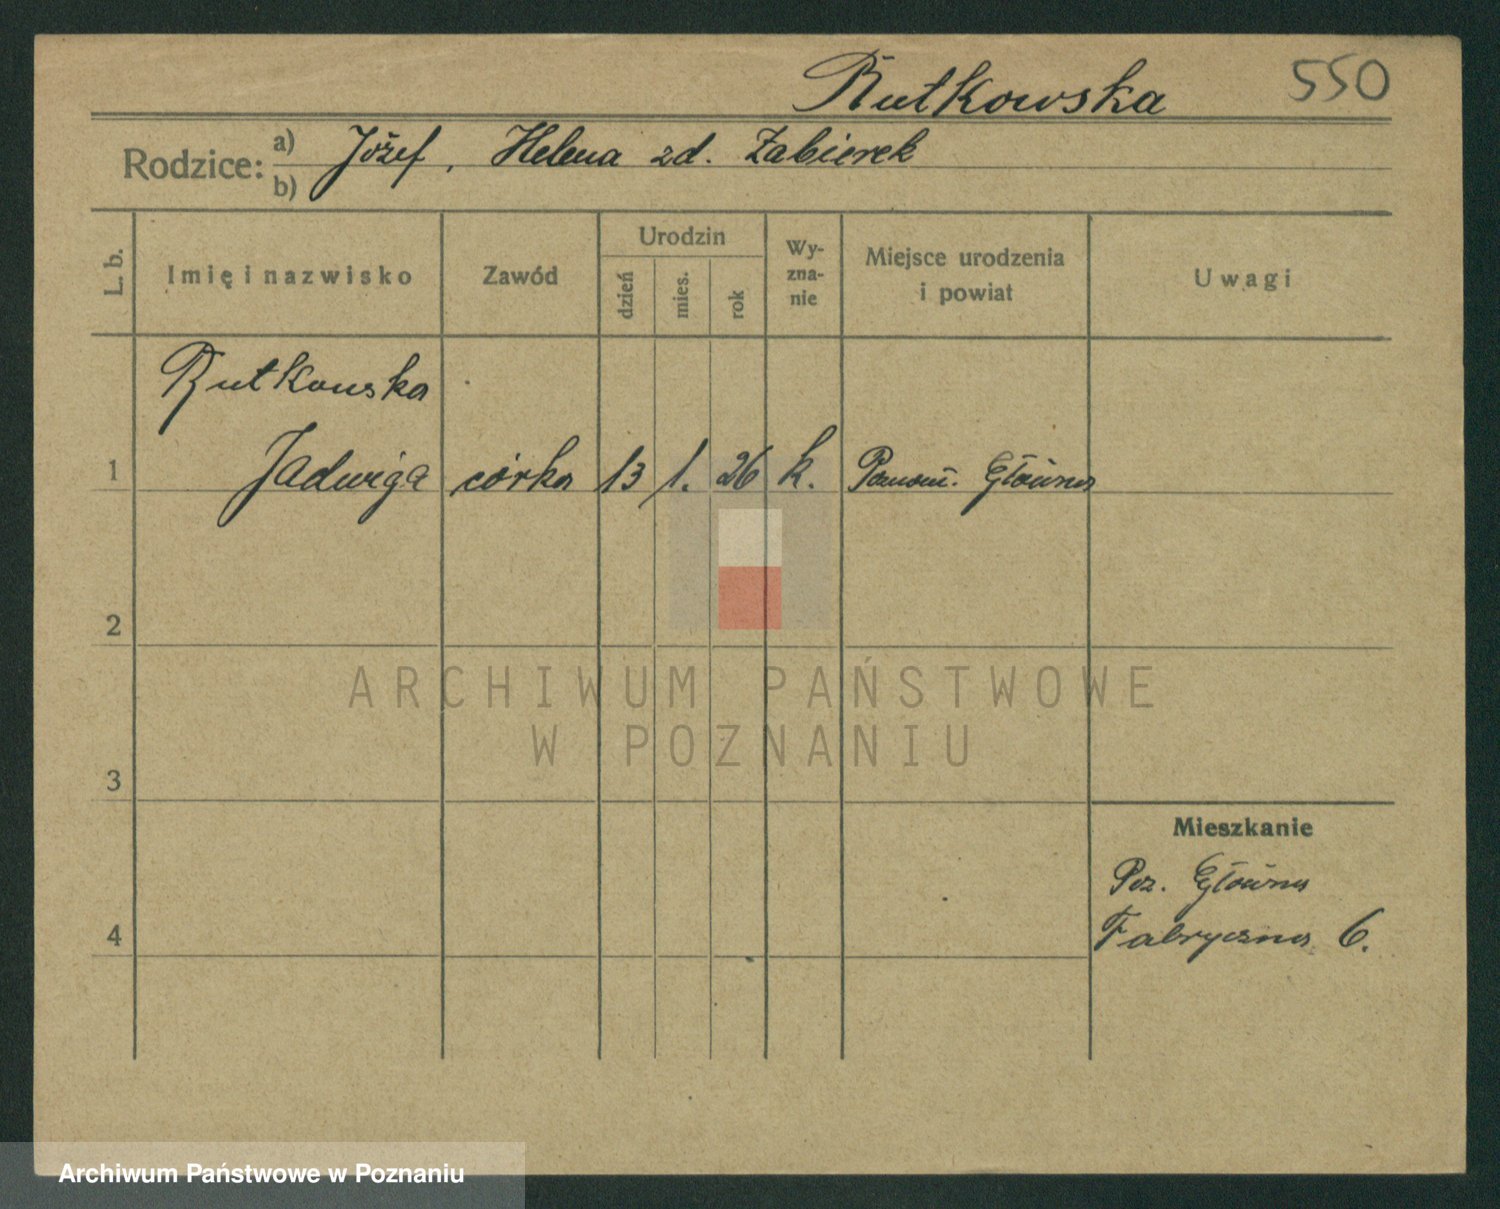 Rutkowska 550
Rodzice: a) Józef, Helena zd. Żabierek
b)
L. b. Imię i nazwisko Zawód Urodzin dzień mies. rok Wy-zna-nie Miejsce urodzenia i powiat Uwagi
Rutkowska
1 Jadwiga córka 13 1. 26 k. Poznań. Główna
2
ARCHIWUM PAŃSTWOWE
W POZNANIU
3
Mieszkanie
Poz. Główna
4 Fabryczna 6.
Archiwum Państwowe w Poznaniu